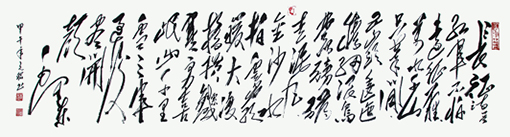 长征
红军不怕
远征难
万水千山
只等闲
五岭逶迤
腾细浪乌
蒙磅礴
走泥丸
金沙水
拍云崖
暖大渡
桥横铁
索寒更喜
岷山千里
雪三军
过后
尽开
颜
毛泽东
甲午年